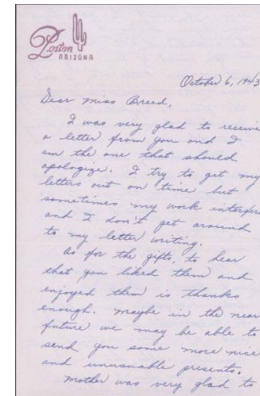 Poston
ARIZONA
October 6, 1943
Dear Miss Breed,
I was very glad to receive
a letter from you and I
am the one that should
apologize. I try to get my
letters out on time but
sometimes my work interferes
and I don't get around
to my letter writing.
As for the gifts, to hear
that you liked them and
enjoyed them is thanks
enough. Maybe in the near
future we may be able to
send you some more nice
and presents.
Mother was very glad to